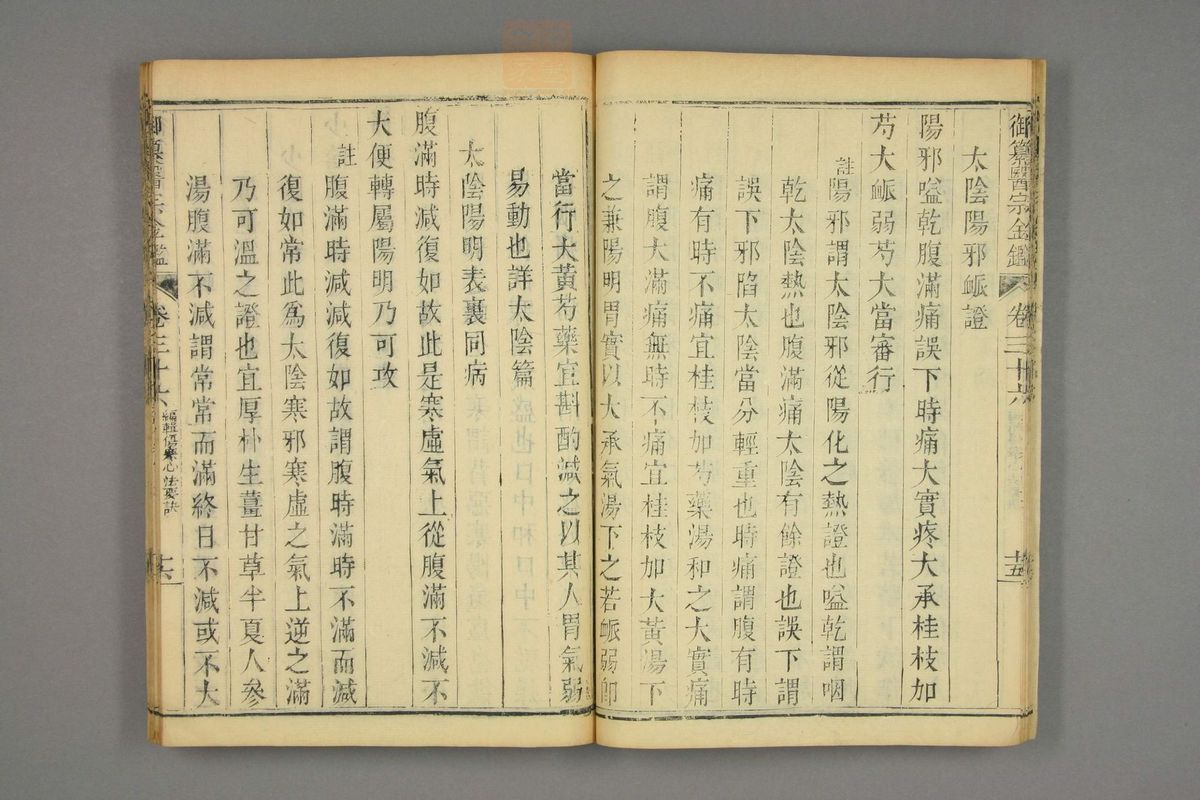 御纂醫宗金鑑 卷三十六 十五
太陰陽邪脈證
陽邪嗌乾腹滿痛誤下時痛大實疼大承桂枝加
芍大脈弱芍大當審行
註陽邪謂太陰邪從陽化之熱證也嗌乾謂咽
乾太陰熱也腹滿痛太陰有餘證也誤下謂
誤下邪陷太陰當分輕重也時痛謂腹有時
痛有時不痛宜桂枝加芍藥湯和之大實痛
謂腹大滿痛無時不痛宜桂枝加大黃湯下
之兼陽明胃實以大承氣湯下之若脈弱卽
當行大黃芍藥宜斟酌減之以其人胃氣弱
易動也詳太陰篇
太陰陽明表裏同病
腹滿時減復如故此是寒虛氣上從腹滿不減不
大便轉屬陽明乃可攻
註腹滿時減減復如故謂腹時滿時不滿而減
復如常此爲太陰寒邪寒虛之氣上逆之滿
乃可溫之證也宜厚朴生薑甘草半夏人參
湯腹滿不減謂常常而滿終日不減或不大
御纂醫宗金鑑 卷三十六 編輯傷寒心法要訣 十六